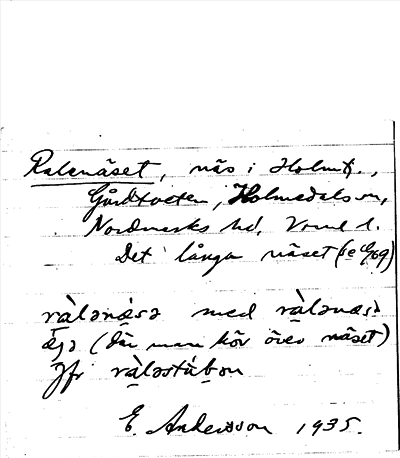 Ralenäset, näs i Holmtj.,
Gårdtveten, Holmedals sn,
Nordmarks hd, Vrml l.
Det långa näset (se Eg09)
ràlənǽsə med ràlənæsə
æjə (där man kör över näset)
Jfr ràləstúbən
E. Andersson 1935.